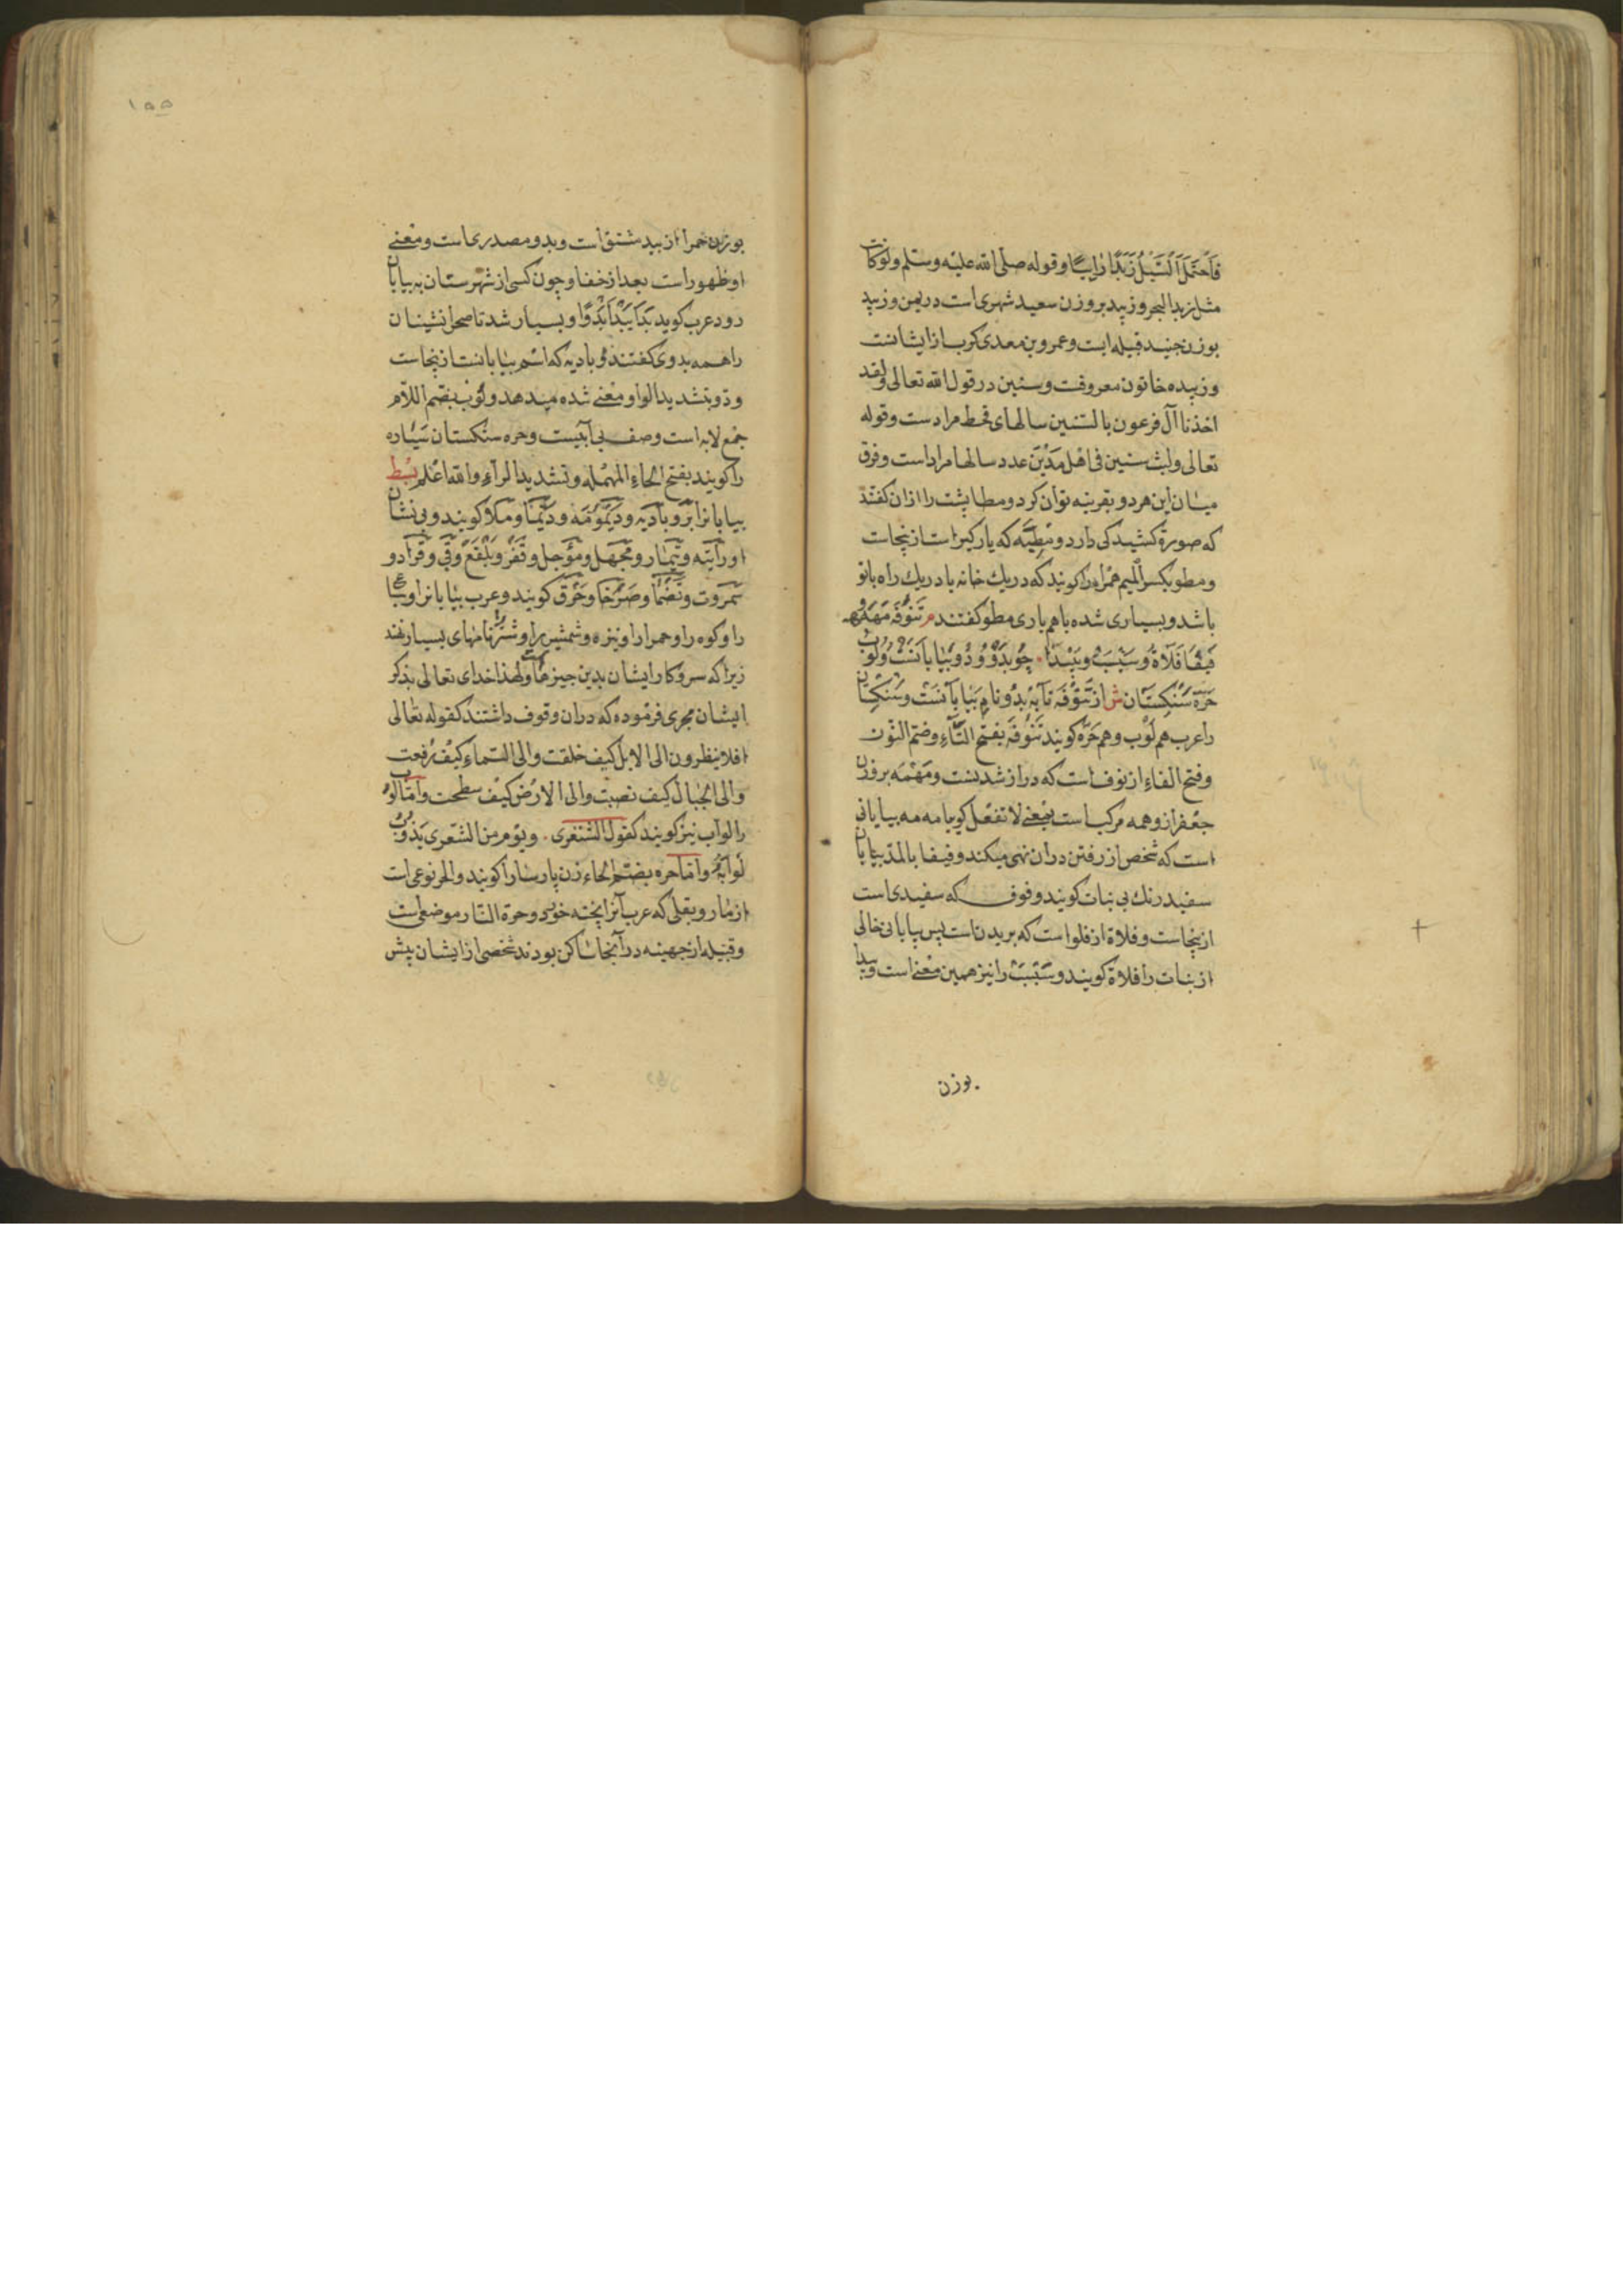 فَاحْتَمَلَ السَّیْلُ زَبَدًا رَابِیًا و قوله صلی الله علیه وسلم ولو کانت
مثل زبد البحر و زبید بر وزن سعید شهری است در یمن و زبید
بوزن جنید قبیله ایست و عمرو بن معدی کرب از ایشانست
و زبیده خاتون معروفت و سنین در قول الله تعالی ولقد
اخذنا آل فرعون بالسنین سالهای قحط مرادست وقوله
تعالی ولبث سنین فی اهل مَدْیَن عدد سالها مراد است و فرق
میان این هر دو بقرینه توان کرد و مطا پشت را ازان کفتند
که صورة کشیدکی دارد و مَطِیَّه که بارکیر است از ینجاست
و مطو بکسر المیم همراه را کویند که در یك خانه یا در یك راه با تو
باشد و بسیاری شده با هم یاری مطو کفتند م تَنُوفَه مَهْمَه و
فَیْفَا فَلَاةْ و سَبْسَبْ و بَیْدَا . چُو بَدْوْ وَ دُوْ بَیَابَانَسْتْ وَ لُوبْ
حَرّه سَنْکِسْتَان ش از تَنُوفَه تا بَه بَدْو نامِ بَیابَانَسْت و سَنْکِسْتان
را عرب هم لُوب و هم حَرّه کویند تَنُوفَه بفتح التاء و ضم النون
و فتح الفاء از نوف است که دراز شدنست و مَهْمَه بر وزن
جعفر از و همه مرکب است بمعنی لا تفعل کویا مه مه بیابانی
است که شخص از رفتن دران نهی میکند و فیفا بالمد بیابان
سفید رنك بی نبات کویند و فوف که سفیدی است
ازینجاست و فلاة از فلو است که بریدن است پس بیابانی خالی
از نبات را فلاة کویند و سَبْسَبْ را نیز همین معنی است و بیدا
بوزن
۱۵۵
بوزن حمرا از بید مشتق است و بدو مصدری است و معنی
او ظهور است بعد از خفا و چون کسی از شهرستان به بیابان
رود عرب کوید بَدَا یَبْدُا بَدْوًا و بسیار شد تا صحرا نشینان
را همه بدوی کفتند و بادیه که اسم بیابانست ازینجاست
و دو بتشدید الواو معنی شده میدهد و لُوب بضم اللام
جمع لابه است وصف بی آبیست و حره سنکستان سیاه
را کویند بفتح الحاء المهمله و تشدید الراء و الله اعلم بسط
بیابانرا بَرّ و بادیه و دَیْمُومَه و و مَلا کویند و بی نشان
او را تیه و و مَجْهَل و و قَفْر و بَلْقَع و قی و
و و و خَرْق کویند و عرب بیابانرا و
را و کوه را و حمرا را و نیزه و شمشیر را و شتر را نامهای بسیار نهند
زیرا که سر و کار ایشان بدین چیزهاست و لهذا خدای تعالی بذکر
ایشان مجری فرموده که دران وقوف داشتند کقوله تعالی
افلا ینظرون الی الابل کیف خلقت و الی السماء کیف رفعت
و الی الجبال کیف نصبت و الی الارض کیف سطحت و اما لوب
را لواب نیز کویند کقول الشنفری . و یوم من الشعری یذوب
لوابه و اما حره بضم الحاء زن پارسا را کویند و الحر نوعی است
از مار و بقلی که عرب آنرا پخته خورد و حرة النار موضعی است
و قبیله از جهینه در آنجا ساکن بودند شخصی از ایشان پیش